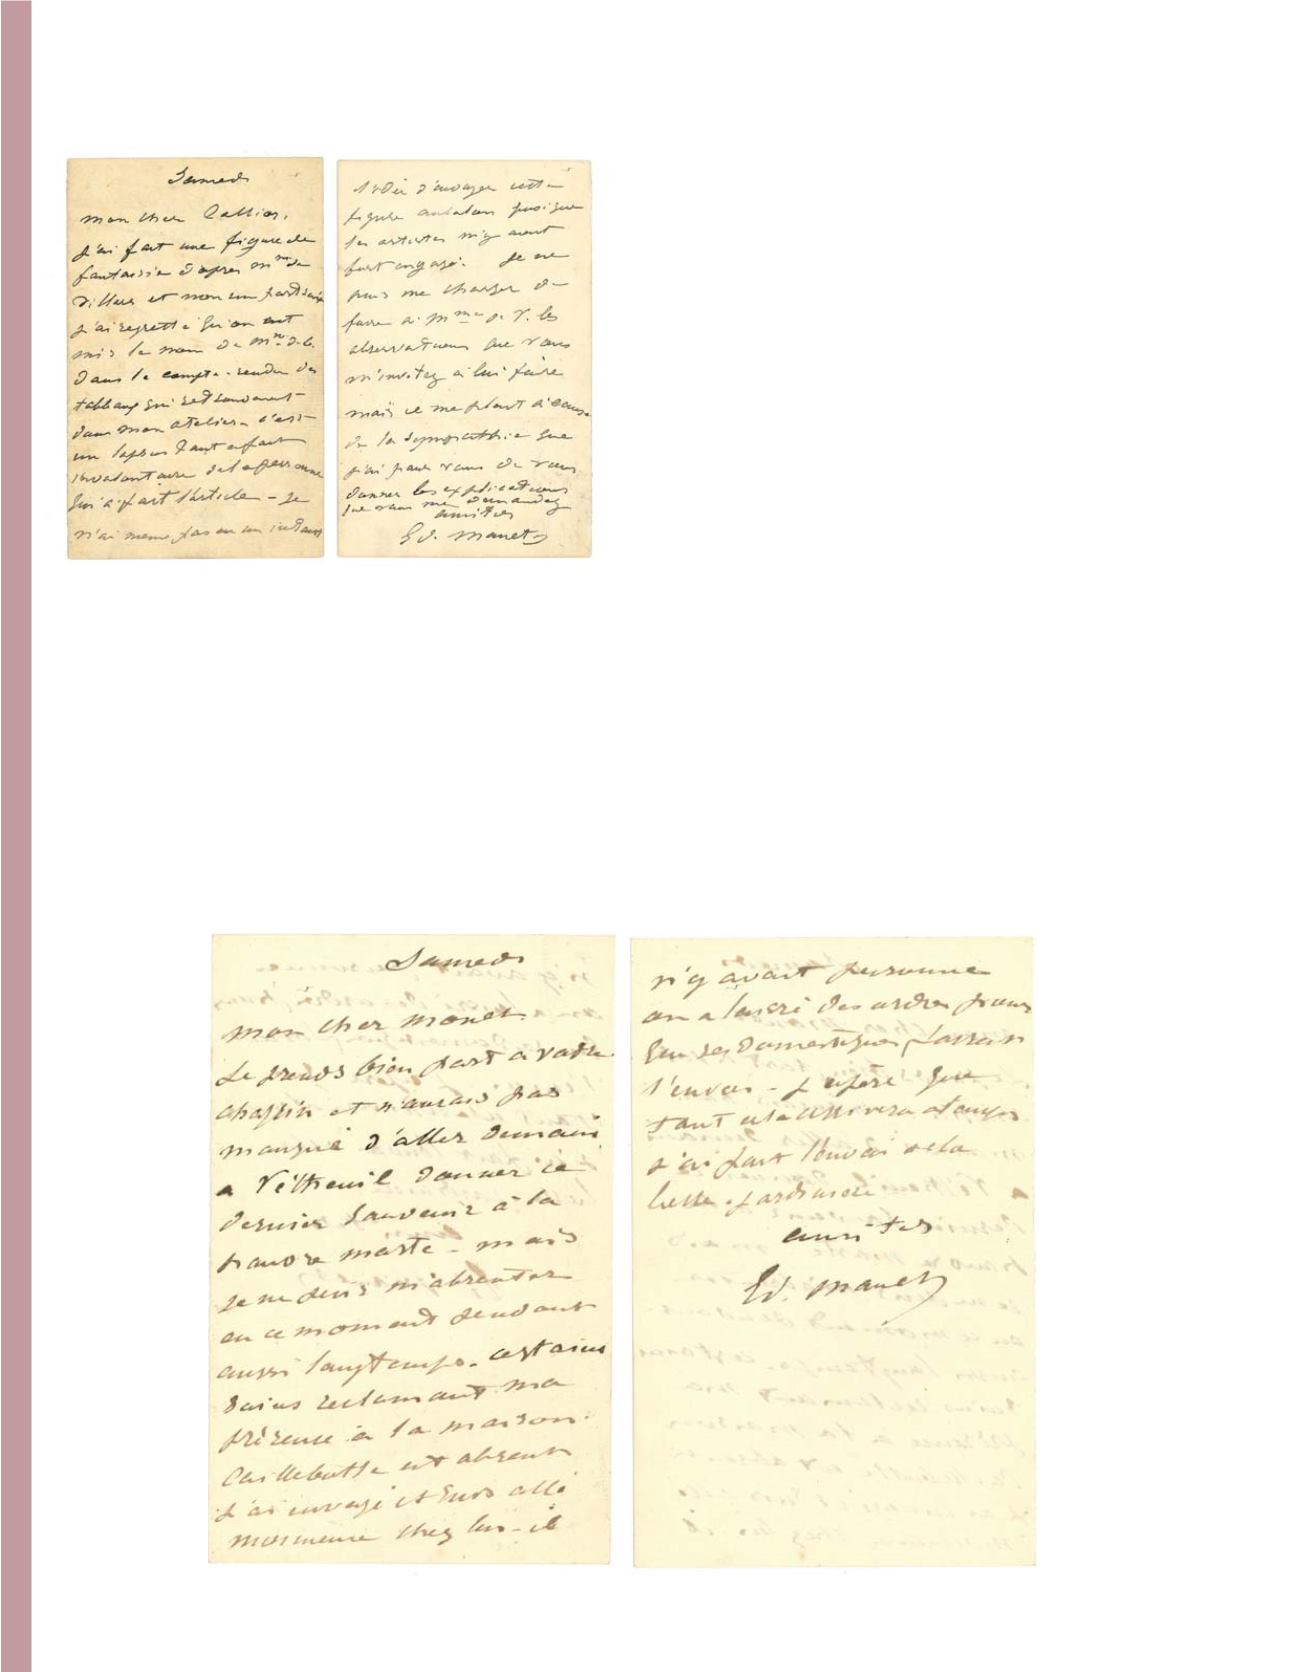 Samedi
mon cher Callias,
j'ai fait une figure de
fantaisie d'après mme de
villars et mon
j'ai regretté qu'on eut
mis le nom de mme de C.
dans le compte-rendu des
tableaux qui se trouvent
dans mon atelier. c'est
un lapsus tout a fait
involontaire de la personne
qui a fait l'article - je
n'ai meme pas eu un instant
l'idée d'envoyer cette
figure au salon quoique
les artistes m'y aient
fort engagé. je ne
puis me charger de
faire a mme de V. les
observations que vous
m'invitez a lui faire
mais il me plait a cause
de la sympathie que
j'ai pour vous de vous
donner les explications
que vous me demandez
amitiés
Ed. Manet
Samedi
mon cher Monet.
Je prends bien part a votre
chagrin et n'aurais pas
manqué d'aller demain
a Vétheuil donner ce
dernier souvenir à la
pauvre morte - mais
je ne puis m'absenter
en ce moment pendant
aussi longtemps. certains
soins reclamant ma
présence à la maison.
Caillebotte est absent
j'ai envoyé et suis allé
moi meme chez lui - il
n'y avait personne
on a laissé des ordres pour
que ses domestiques fassent
l'envoi - j'espère que
tout cela arrivera a temps
j'ai fait l'envoi de la

amitiés
Ed. Manet